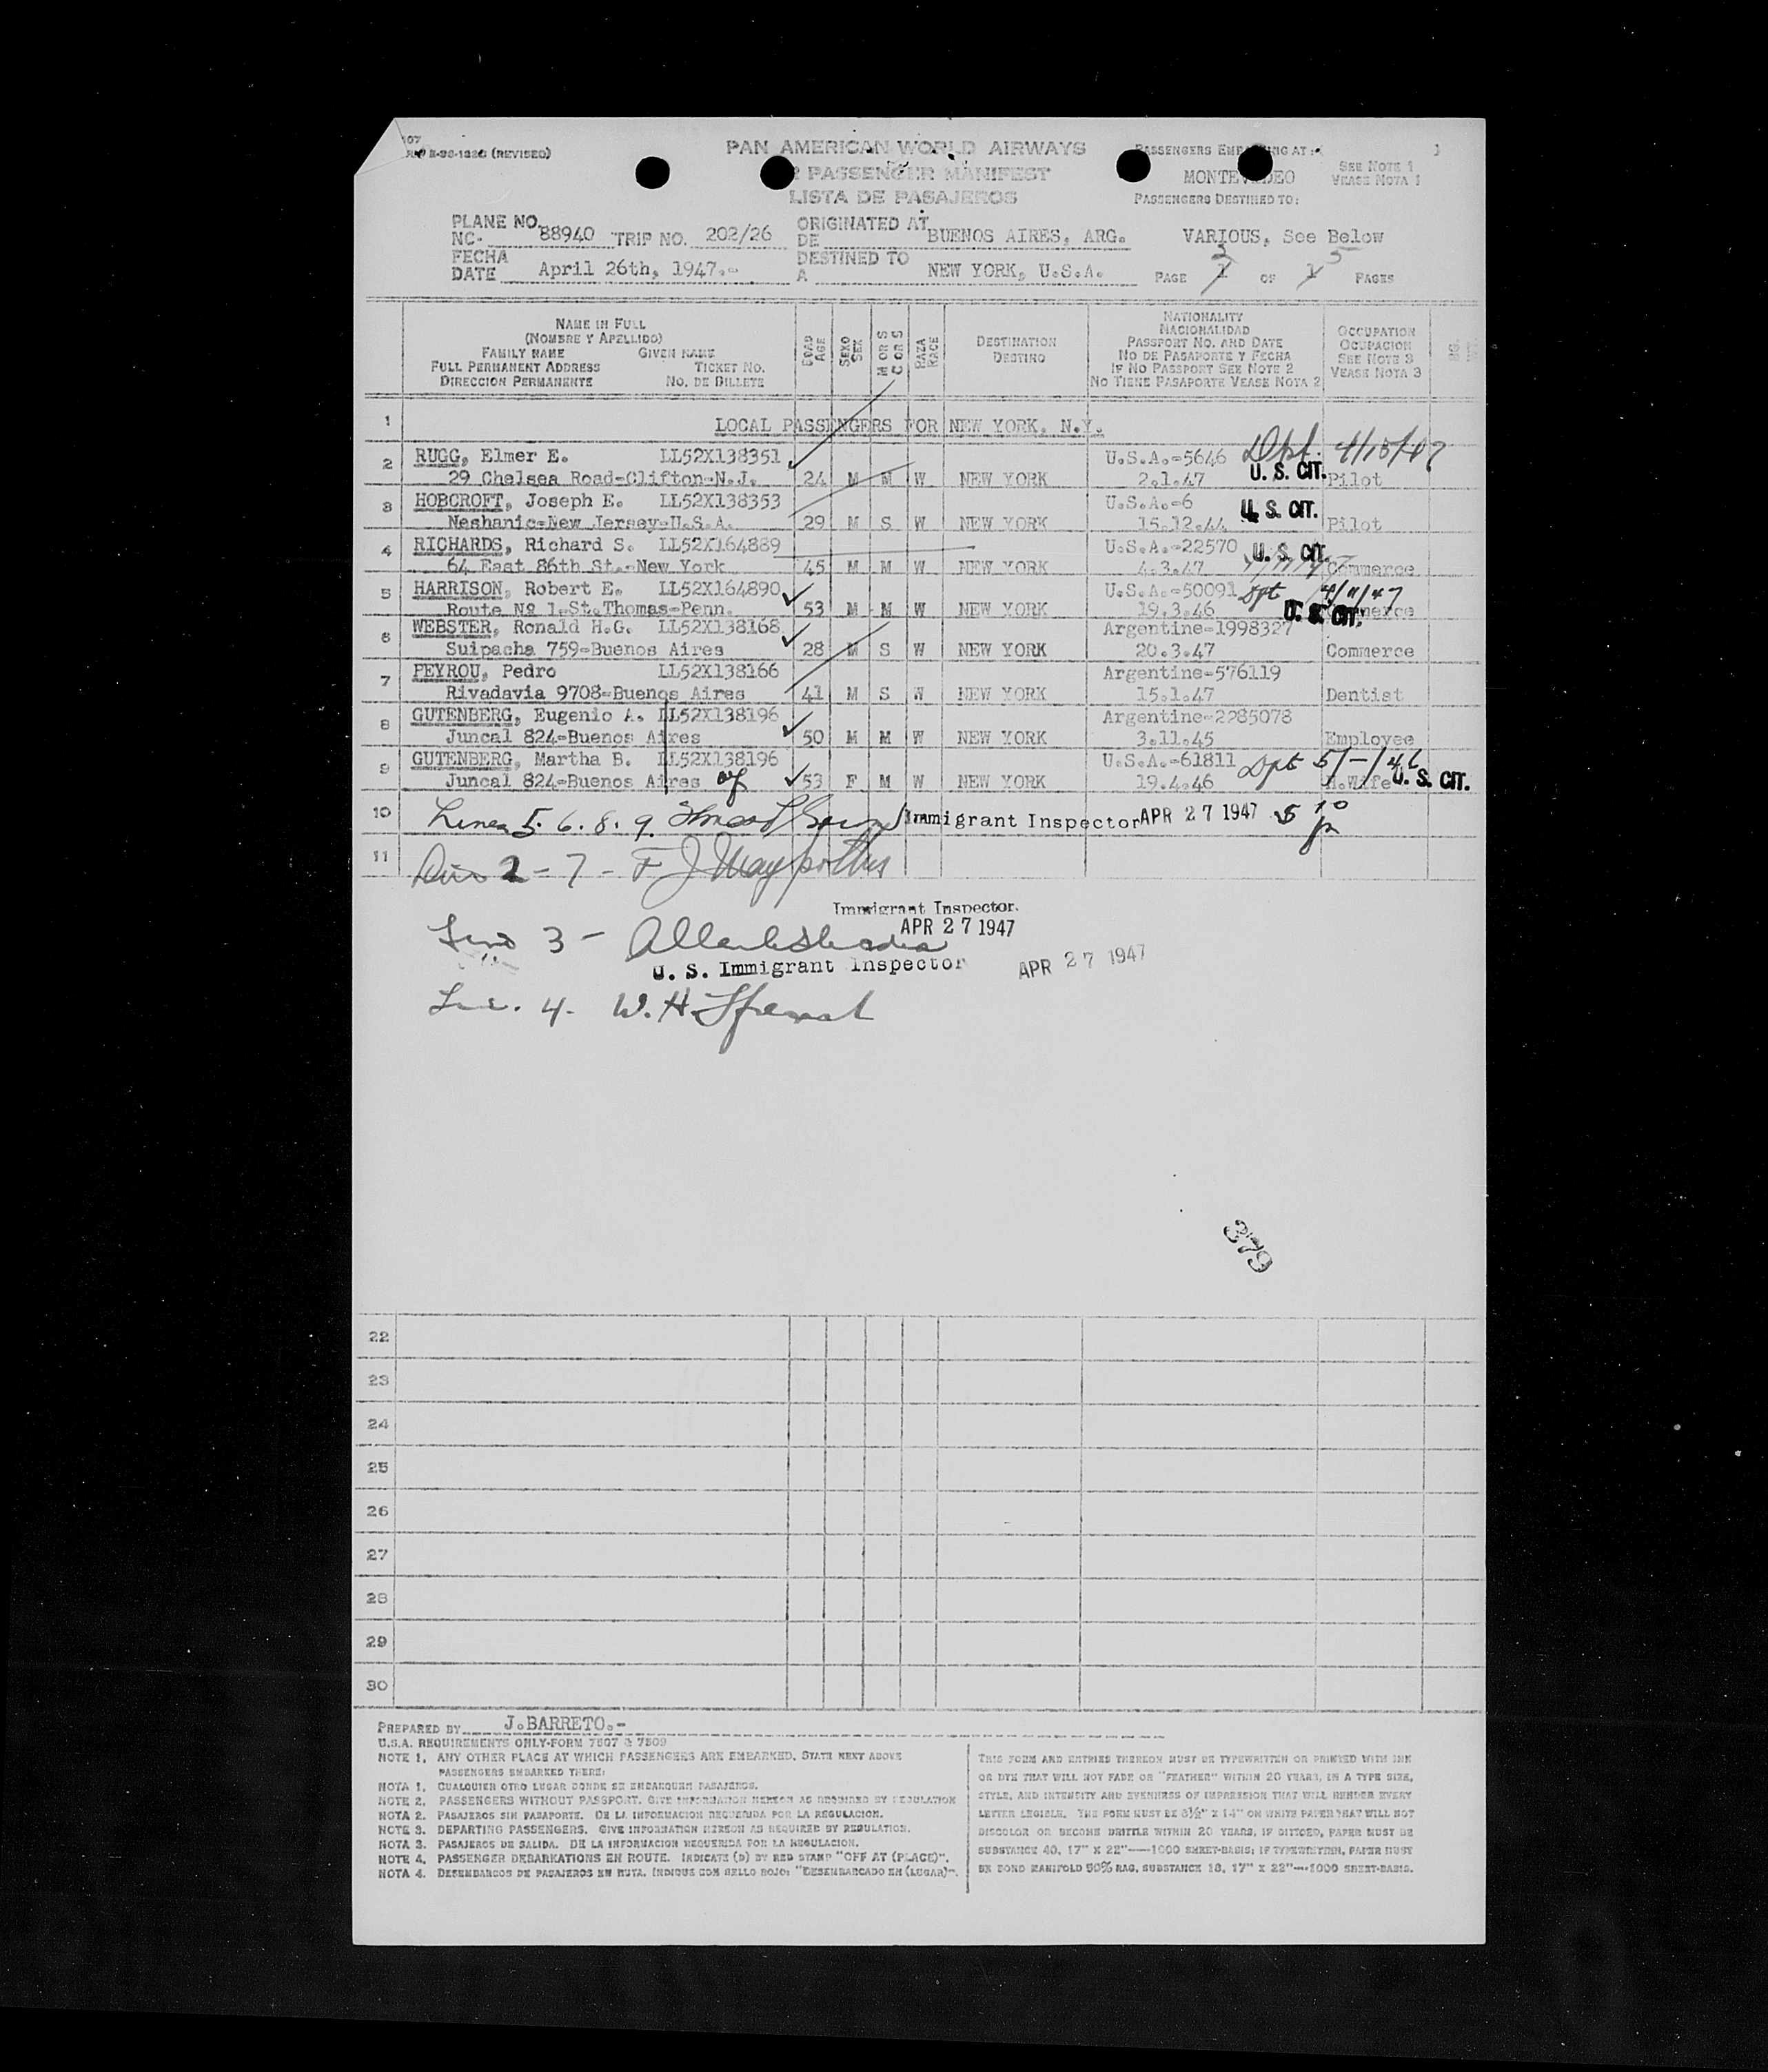 (REVISED)
PAN AMERICAN WORLD AIRWAYS
PASSENGER MANIFEST
LISTA DE PASAJEROS
PASSENGERS EMBARKING AT:
MONTEVIDEO
SEE NOTE 1
VEASE NOTA 1
PASSENGERS DESTINED TO:
VARIOUS, See Below
PLANE NO.
NC- 88940 TRIP NO. 202/26
ORIGINATED AT
DE BUENOS AIRES, ARG.
FECHA
DATE April 26th, 1947.-
DESTINED TO
A NEW YORK, U.S.A.
PAGE 1 3 OF 1 5 PAGES
NAME IN FULL
(NOMBRE Y APELLIDO)
FAMILY NAME GIVEN NAME
FULL PERMANENT ADDRESS TICKET NO.
DIRECCION PERMANENTE NO. DE BILLETE
EDAD
AGE
SEXO
SEX
M OR S
C OR S
RAZA
RACE
DESTINATION
DESTINO
NATIONALITY
NACIONALIDAD
PASSPORT NO. AND DATE
NO DE PASAPORTE Y FECHA
IF NO PASSPORT SEE NOTE 2
NO TIENE PASAPORTE VEASE NOTA 2
OCCUPATION
OCUPACION
SEE NOTE 3
VEASE NOTA 3
1 LOCAL PASSENGERS FOR NEW YORK, N.Y.
2 RUGG, Elmer E. LL52X138351 U.S.A.-5646 Dpt.
29 Chelsea Road-Clifton-N.J. 24 M M W NEW YORK 2.1.47 U. S. CIT. Pilot
3 HOBCROFT, Joseph E. LL52X138353 U.S.A.-6 U. S. CIT.
Neshanic-New Jersey-U.S.A. 29 M S W NEW YORK 15.12.44 Pilot
4 RICHARDS, Richard S. LL52X164889 U.S.A.-22570 U. S. CIT.
64 East 86th St.-New York 45 M M W NEW YORK 4.3.47 Commerce
5 HARRISON, Robert E. LL52X164890 U.S.A.-50091 Dpt 4/11/47
Route Nº 1-St.Thomas-Penn. 53 M M W NEW YORK 19.3.46 U. S. CIT. Commerce
6 WEBSTER, Ronald H.G. LL52X138168 Argentine-1998327
Suipacha 759-Buenos Aires 28 M S W NEW YORK 20.3.47 Commerce
7 PEYROU, Pedro LL52X138166 Argentine-576119
Rivadavia 9708-Buenos Aires 41 M S W NEW YORK 15.1.47 Dentist
8 GUTENBERG, Eugenio A. LL52X138196 Argentine-2285078
Juncal 824-Buenos Aires 50 M M W NEW YORK 3.11.45 Employee
9 GUTENBERG, Martha B. LL52X138196 U.S.A.-61811 Dpt 5/-/46
Juncal 824-Buenos Aires 53 F M W NEW YORK 19.4.46 H.Wife U. S. CIT.
10 Lines 5. 6. 8. 9. Immigrant Inspector APR 27 1947
11 2 - 7 - F J
Immigrant Inspector.
APR 27 1947
Line 3 -
U. S. Immigrant Inspector APR 27 1947
Line 4 - W. H.
379
22
23
24
25
26
27
28
29
30
PREPARED BY J.BARRETO.-
U.S.A. REQUIREMENTS ONLY-FORM 7507 & 7509
NOTE 1. ANY OTHER PLACE AT WHICH PASSENGERS ARE EMBARKED, STATE NEXT ABOVE
PASSENGERS EMBARKED THERE:
NOTA 1. CUALQUIER OTRO LUGAR DONDE SE EMBARQUEN PASAJEROS.
NOTE 2. PASSENGERS WITHOUT PASSPORT. GIVE INFORMATION HEREON AS REQUIRED BY REGULATION
NOTA 2. PASAJEROS SIN PASAPORTE. DE LA INFORMACION REQUERIDA POR LA REGULACION.
NOTE 3. DEPARTING PASSENGERS. GIVE INFORMATION HEREON AS REQUIRED BY REGULATION.
NOTA 3. PASAJEROS DE SALIDA. DE LA INFORMACION REQUERIDA POR LA REGULACION.
NOTE 4. PASSENGER DEBARKATIONS EN ROUTE. INDICATE (D) BY RED STAMP "OFF AT (PLACE)".
NOTA 4. DESEMBARCOS DE PASAJEROS EN RUTA. INDIQUE CON SELLO ROJO: "DESEMBARCADO EN (LUGAR)".
THIS FORM AND ENTRIES THEREON MUST BE TYPEWRITTEN OR PRINTED WITH INK
OR DYE THAT WILL NOT FADE OR "FEATHER" WITHIN 20 YEARS, IN A TYPE SIZE,
STYLE, AND INTENSITY AND EVENNESS OF IMPRESSION THAT WILL RENDER EVERY
LETTER LEGIBLE. THE FORM MUST BE 8½" X 14" ON WHITE PAPER THAT WILL NOT
DISCOLOR OR BECOME BRITTLE WITHIN 20 YEARS. IF DITTOED, PAPER MUST BE
SUBSTANCE 40, 17" X 22"—1000 SHEET-BASIS; IF TYPEWRITTEN, PAPER MUST
BE BOND MANIFOLD 50% RAG, SUBSTANCE 18, 17" X 22"—1000 SHEET-BASIS.